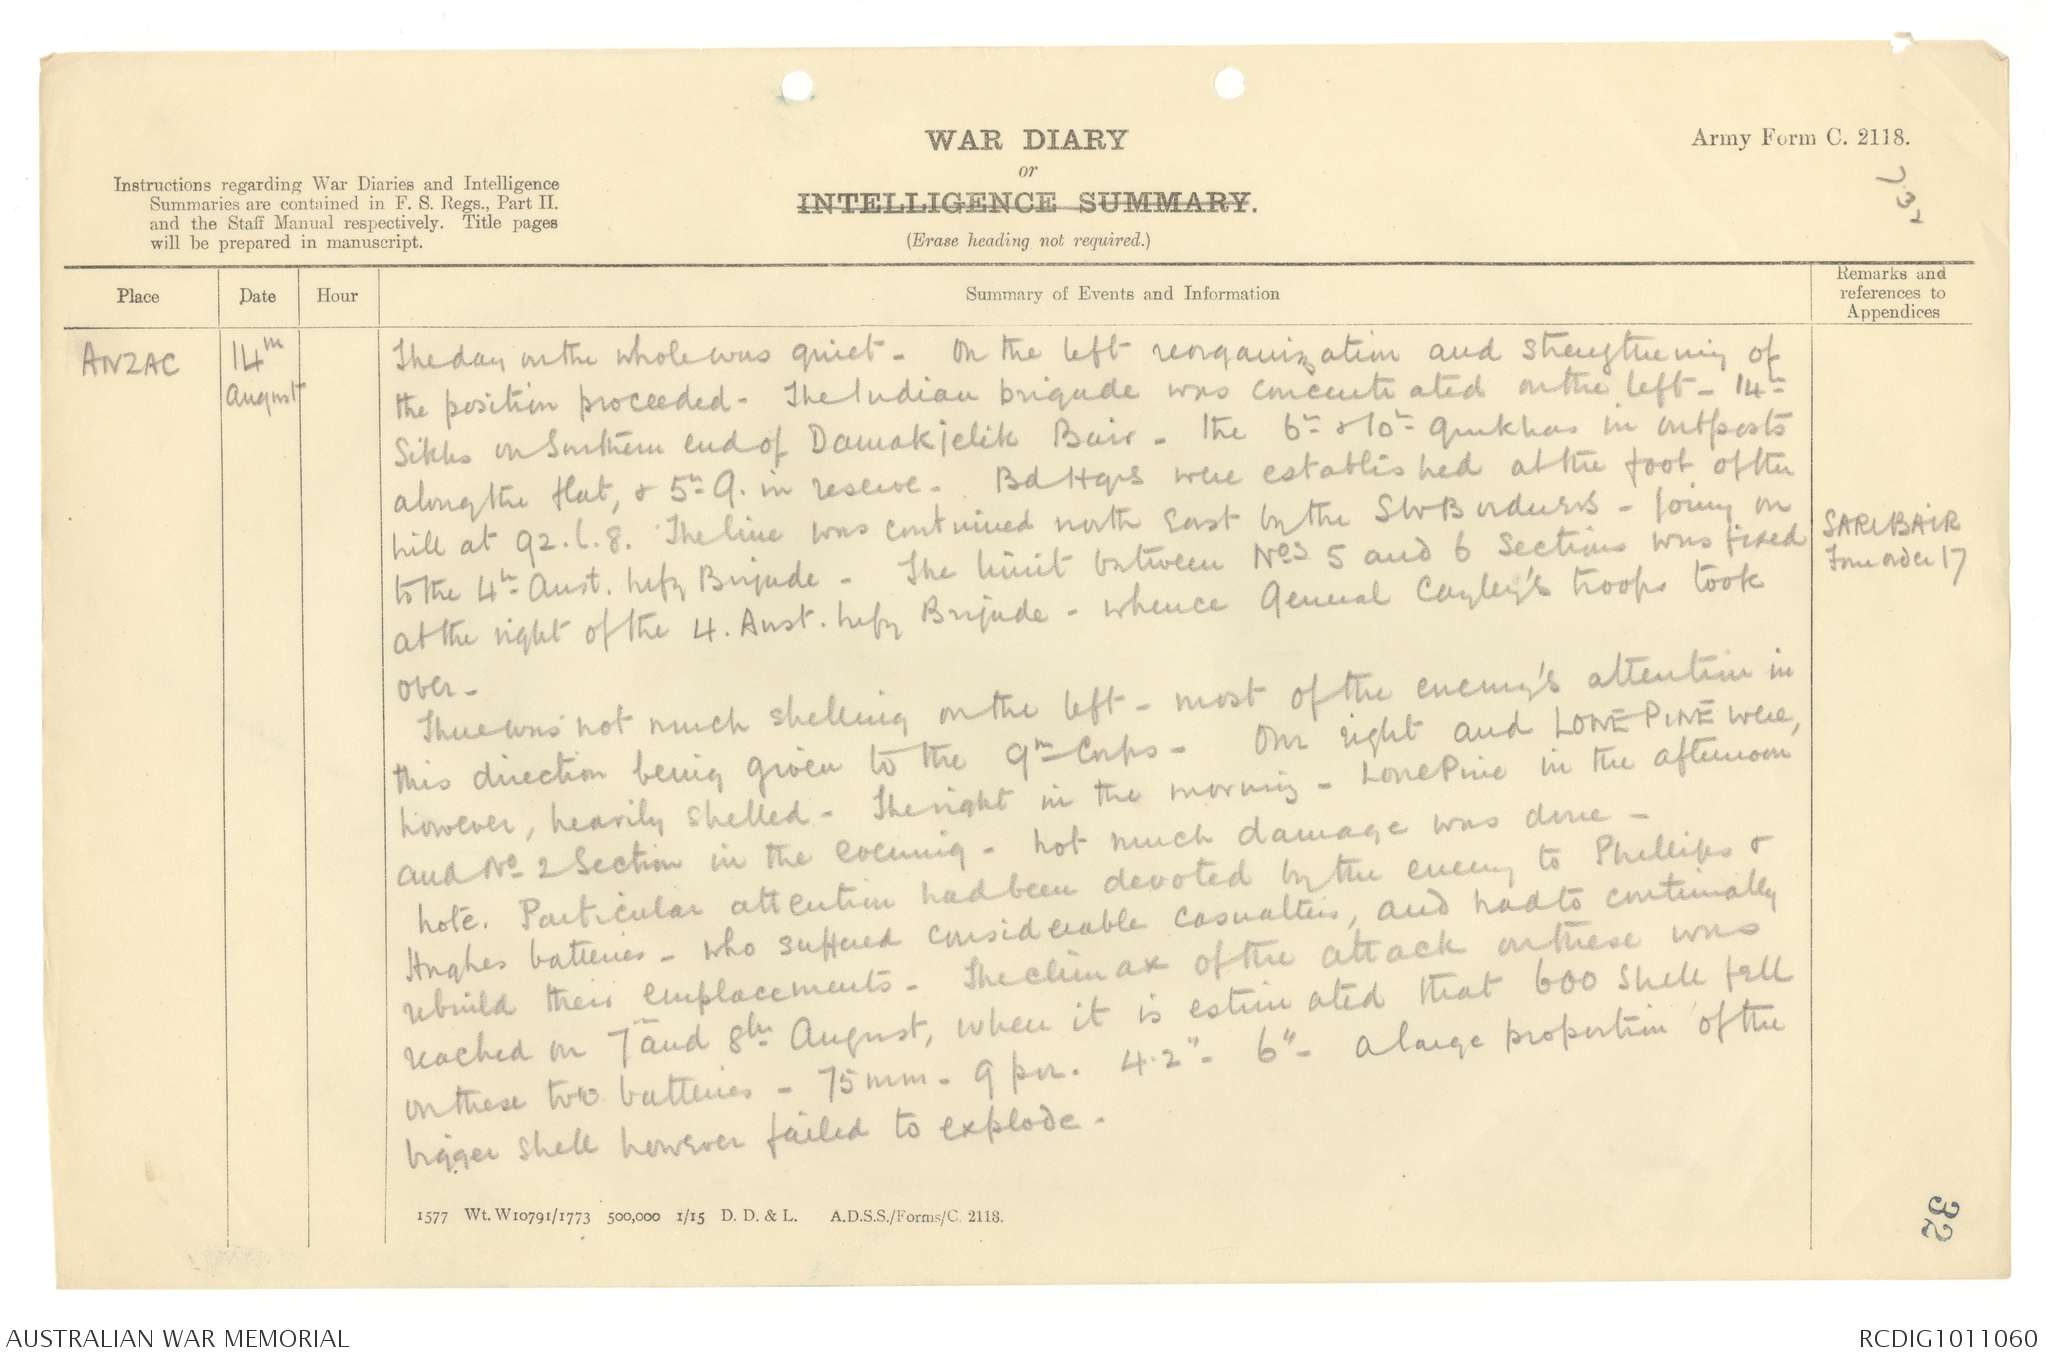 WAR DIARY
or
INTELLIGENCE SUMMARY.
(Erase heading not required.)
Army Form C. 2118.
Instructions regarding War Diaries and Intelligence
Summaries are contained in F. S. Regs., Part II.
and the Staff Manual respectively. Title pages
will be prepared in manuscript.
Place
Date
Hour
Summary of Events and Information
Remarks and
references to
Appendices
ANZAC
14th
August
The day on the whole was quiet - On the left reorganization and strengthening of
the position proceeded - The Indian brigade was concentrated on the left - 14th
Sikhs on Southern end of Damakjelik Bair - The 6th & 10th Gurkhas in outposts
along the flat, & 5th G. in reserve - Bd Hqrs were established at the foot of the
hill at 92. l. 8. The line was continued north East by the SWBorderers - joining on
to the 4th Aust. Infy Brigade - The limit between Nos 5 and 6 Sections was fixed
at the right of the 4. Aust. Infy Brigade - whence General Cayley's troops took
over -
SARI BAIR
Force order 17
There was not much shelling on the left - most of the enemy's attention in
this direction being given to the 9th Corps - Our right and LONE PINE were,
however, heavily shelled - The right in the morning - Lone Pine in the afternoon
and No 2 Section in the evening - not much damage was done -
Note. Particular attention had been devoted by the enemy to Phillips &
Hughes batteries - who suffered considerable casualties, and had to continually
rebuild their emplacements - The climax of the attack on these was
reached on 7th and 8th August, when it is estimated that 600 shell fell
on these two batteries - 75mm - 9 pdr. 4.2" - 6" - a large proportion of the
bigger shell however failed to explode -
1577 Wt. W10791/1773 500,000 1/15 D. D. & L. A.D.S.S./Forms/C. 2118.
32
AUSTRALIAN WAR MEMORIAL
RCDIG1011060